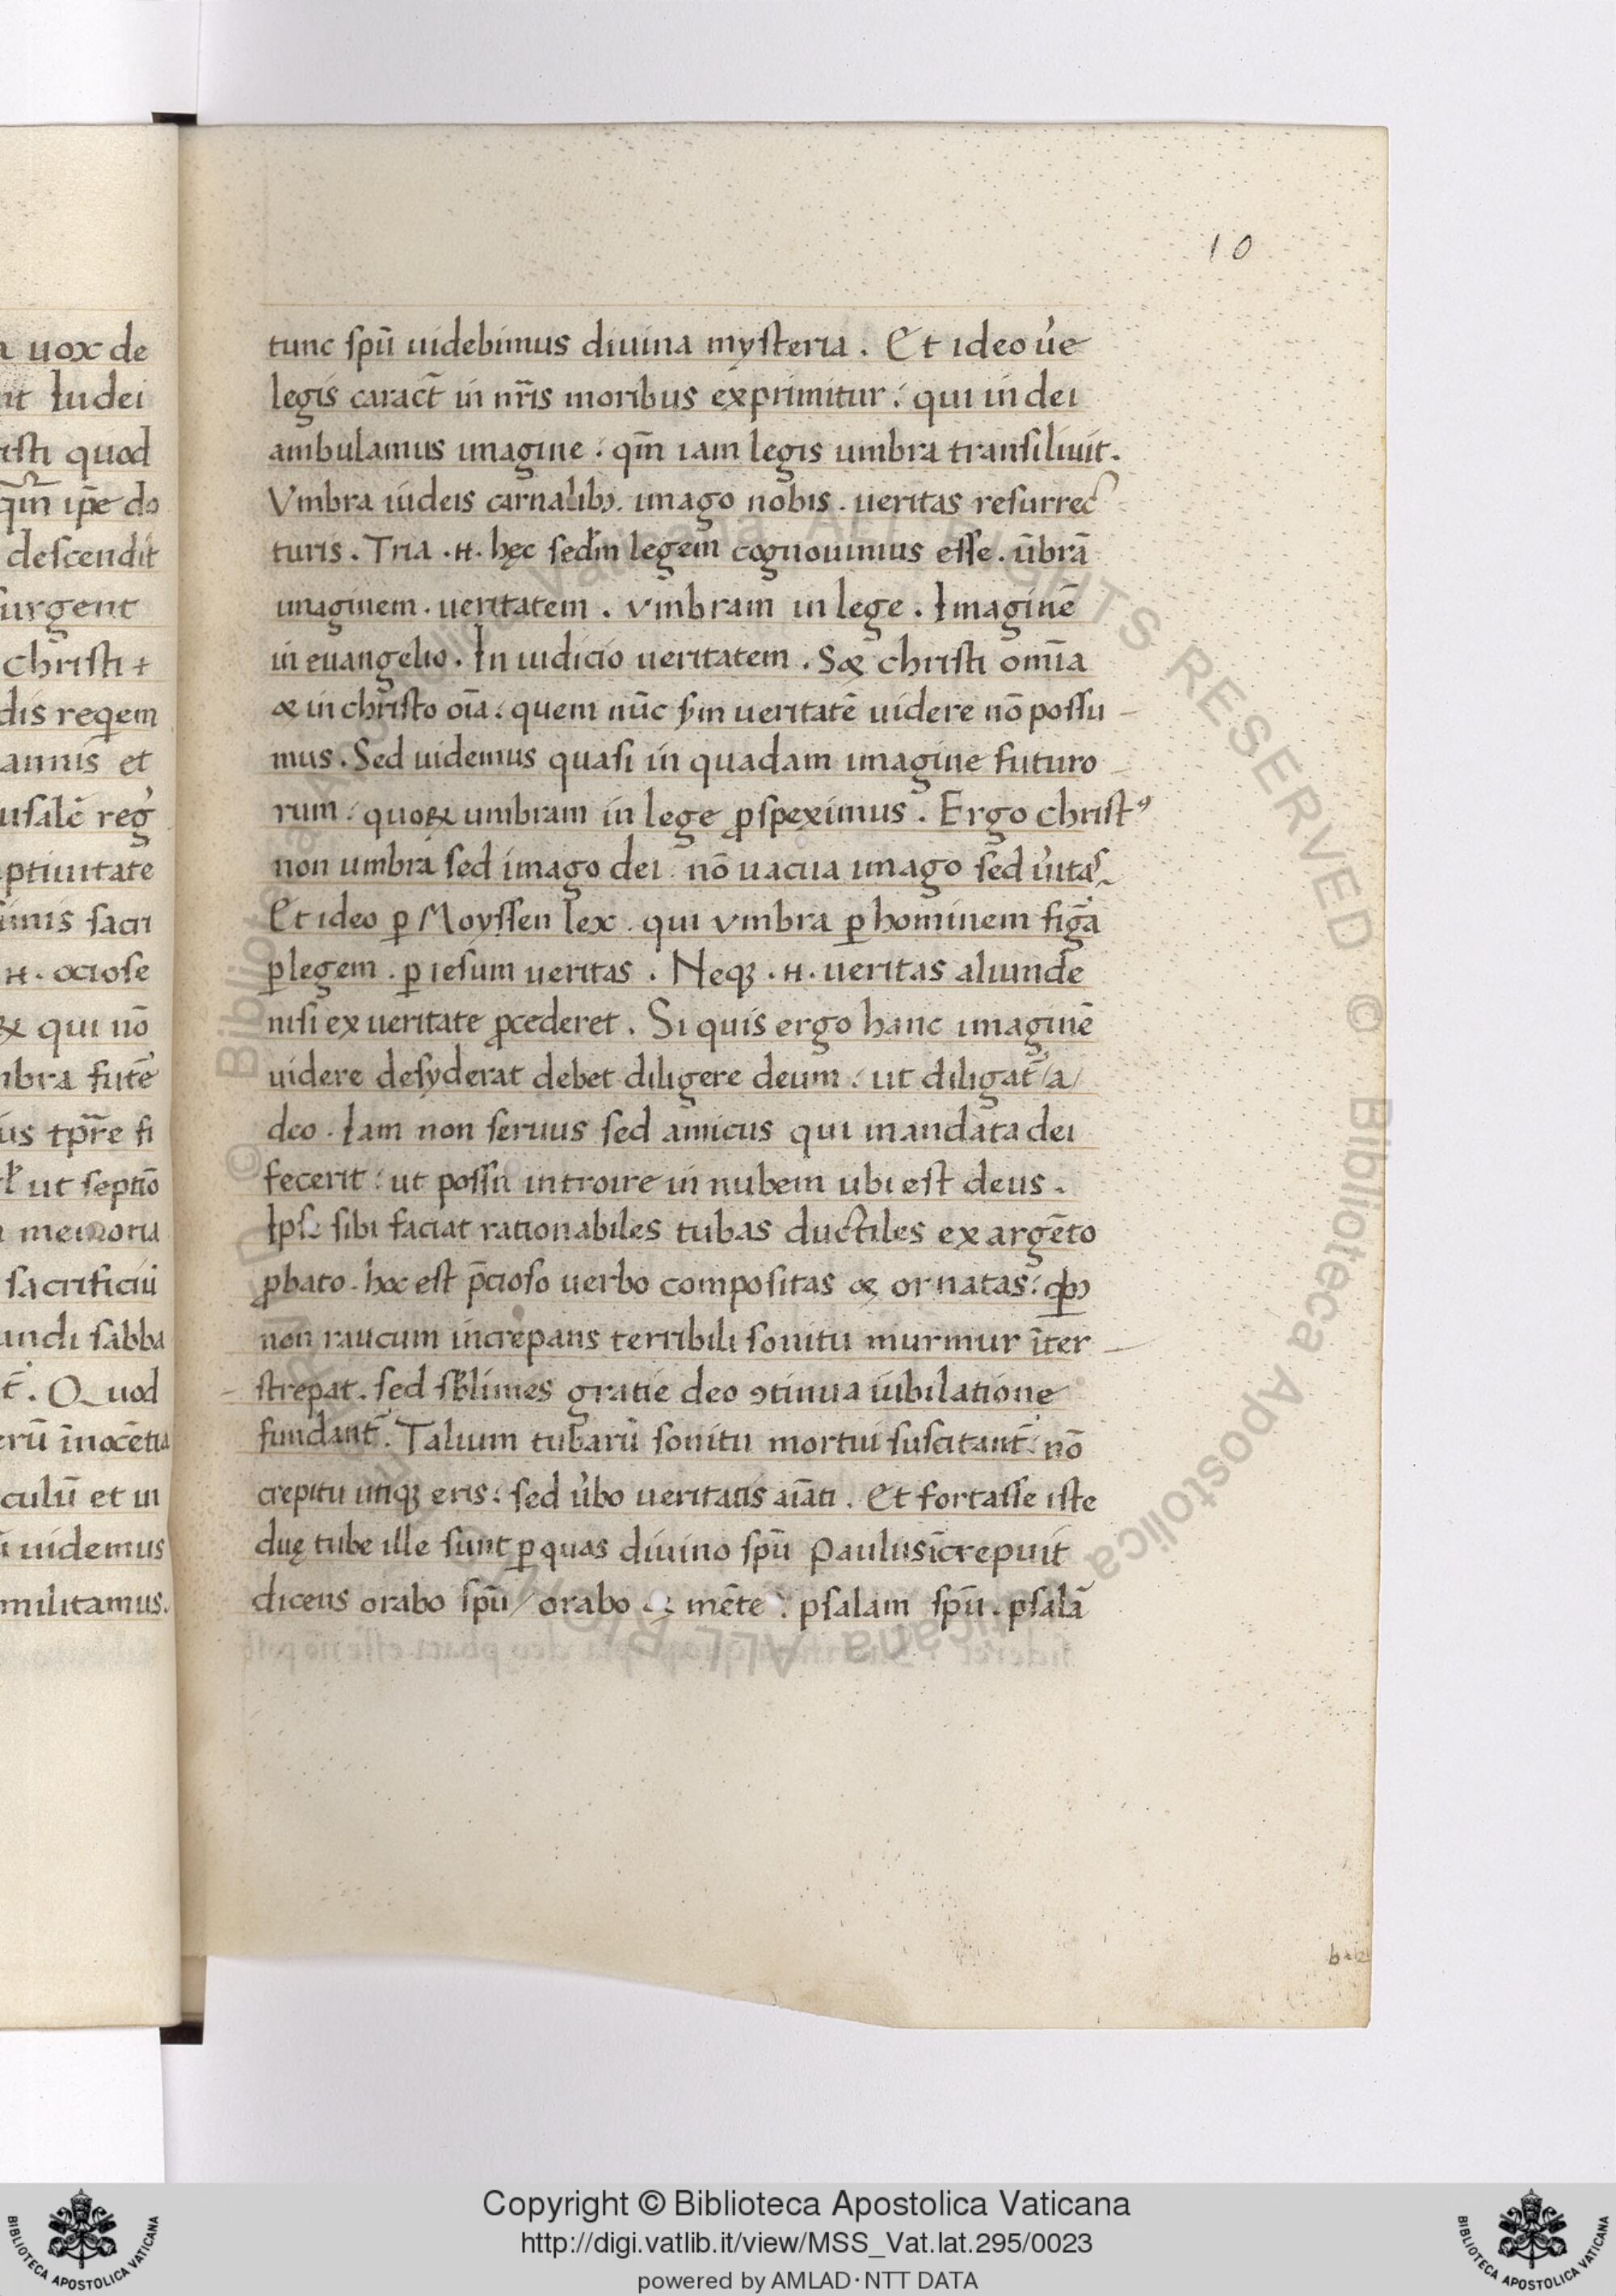 a uox de
it Iudei
isti quod
qm̄ ip̄e do
descendit
surgent
christi +
dis reqem
annis et
usalē reg
ptiuitate
simis sacri
.H. ociose
qui nō
mbra futē
us tp̄r̄e fi
ut septiō
memoria
sacrificiū
undi sabba
t̄. Quod
erū īnocētia
culū et in
uidemus
militamus.
10
tunc sp̄u uidebimus diuina mysteria. Et ideo ue
legis caract̄ in nr̄is moribus exprimitur: qui in dei
ambulamus imagine: qm̄ iam legis umbra transiliuit.
Vmbra iudeis carnalibꝫ. imago nobis. ueritas resurrec
turis. Tria .H. hęc sedm̄ legem cognouimus esse. ūbrā
imaginem. ueritatem. vmbram in lege. Imaginē
in euangelio. In iudicio ueritatem. Sꝫ christi omīa
& in christo oīa: quem nūc sm̄ ueritatē uidere nō possu-
mus. Sed uidemus quasi in quadam imagine futuro-
rum: quoꝝ umbram in lege ꝓspeximus. Ergo christꝰ
non umbra sed imago dei. nō uacua imago sed uitas
Et ideo ꝑ Moyssen lex. qui vmbra ꝑ hominem figā
ꝑ legem. ꝑ iesum ueritas. Neqꝫ .H. ueritas aliunde
nisi ex ueritate ꝓcederet. Si quis ergo hanc imaginē
uidere desyderat debet diligere deum: ut diligat̄ /a/
deo. Iam non seruus sed amicus qui mandata dei
fecerit: ut possit introire in nubem ubi est deus.
Ipse sibi faciat rationabiles tubas ductiles ex argēto
ꝓbato. hoc est p̄cioso uerbo compositas & ornatas: qꝫ
non raucum increpans terribili sonitu murmur īter-
strepat. sed sblimes gratie deo ꝯtinua iubilatione
fundant̄. Talium tubarū sonitu mortui suscitant̄: nō
crepitu utiqꝫ eris: sed ubo ueritatis aīati. Et fortasse iste
duę tube ille sunt ꝑ quas diuino sp̄u Paulus īcrepuit
dicens orabo sp̄u / orabo & mēte: psalam sp̄u. psalā
Copyright © Biblioteca Apostolica Vaticana
http://digi.vatlib.it/view/MSS_Vat.lat.295/0023
powered by AMLAD·NTT DATA
BIBLIOTECA APOSTOLICA VATICANA
BIBLIOTECA APOSTOLICA VATICANA